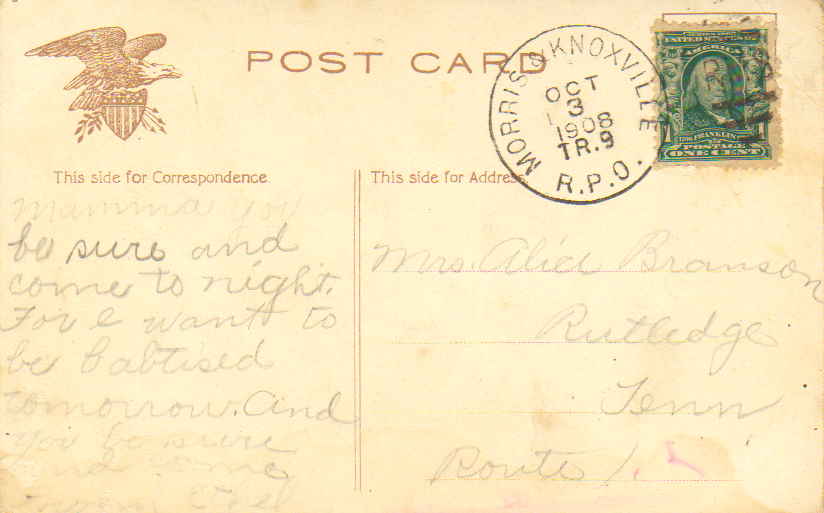 POST CARD
MORRIS & KNOXVILLE
OCT
3
1908
TR.9
R.P.O.
UNITED STATES OF
AMERICA
FRANKLIN
POSTAGE
1 ONE CENT 1
This side for Correspondence
Mamma you
be sure and
come to night.
For I want to
be babtised
tomorrow. And
you be sure
and come
from Ethel
This side for Address
Mrs. Alice Branson
Rutledge
Tenn
Route 1.